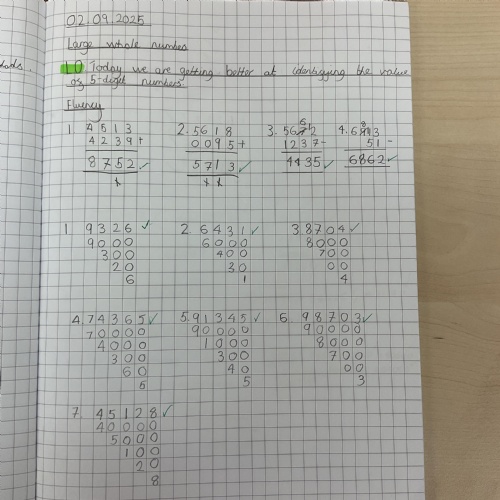 02.09.2025
Large whole number
LO Today we are getting better at identifying the value
of 5-digit numbers.
Fluency
1. 4513 2. 5618 3. 5672 4. 6
4239+ 0095+ 1237- 51-
8752 ✓ 5713 ✓ 4435 ✓ 6862 ✓
1 9326 ✓ 2. 6431 ✓ 3. 8704 ✓
9000 6000 8000
300 400 700
20 30 00
6 1 4
4. 74365 ✓ 5. 91345 ✓ 6. 98703 ✓
70000 90000 90000
4000 1000 8000
300 300 700
60 40 00
5 5 3
7. 45128 ✓
40000
5000
100
20
8